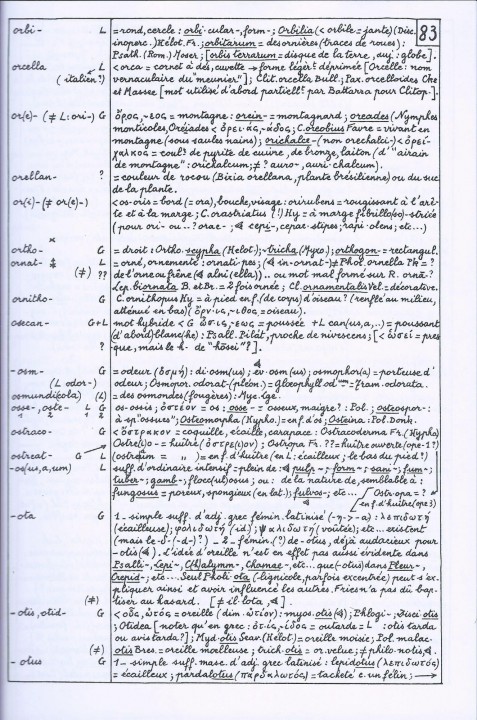 83
orbi- L = rond, cercle : orbi-cular-, form- ; Orbilia (< orbile = jante) (Disc.
inoperc.) Helot. Fr. ; orbitarum = des ornières (traces de roues) ;
Psath. (Rom.) Moser ; [orbis terrarum = disque de la terre, auj : globe].
orcella L <orca = cornet à dés, cuvette → forme légèrt déprimée [Orcelle : nom
(italien?) vernaculaire du "meunier"] ; Clit. orcella Bull. ; Pax. orcelloides Cke
et Massee [mot utilisé d'abord partiellt par Battarra pour Clitop.].
or(e)- (≠ L: ori-) G ὄρος, -εος = montagne : orein- = montagnard ; oreades (Nymphes
monticoles, Oréiades < ὀρει-ας, -άδος ; C. oreobius Favre = vivant en
montagne (sous saules nains) ; orichalce- (non orechalci-) < ὀρεί-
χαλκος = coulr de pyrite de cuivre, de bronze, laiton (d'"airain
de montagne" : orichalcum ; ≠ auro-, auri-chalcum).
orellan- ? = couleur de rocou (Bixia orellana, plante brésilienne) ou du suc
de la plante.
or(i)- (≠ or(e)-) <os-oris = bord (= ora), bouche, visage : orirubens = rougissant à l'arê-
te et à la marge ; C. orastriatus (!) Hy = à marge fibrillo(so)-striée
(pour ori- ou ..? orae- ; cepi-, cepae-stipes ; rapi-olens ; etc...)
ortho- G = droit : Ortho-scypha (Helot.) ; -tricha (Myxo.) ; orthogon- = rectangul.
ornat- L = orné, ornementé : ornati-pes ; (in-ornat-) ≠ Phol. ornella Pk = ?
(≠) ?? de l'orne ou frêne ( alni(ella)) .. ou mot mal formé sur R. ornē-?
Lep. biornata B. et Br. = 2 fois ornée ; Cl. ornamentalis Vel. = décorative.
ornitho- G C. ornithopus Ky = à pied en f. (de corps) d'oiseau? (renflé au milieu,
atténué en bas) (ὄρνις, -ιθος = oiseau).
osecan- G+L mot hybride < G ὦσις, -εως = poussée + L can(us, a, ..) = poussant
(d'abord) blanc(he) : Psall. Pilát, proche de nivescens ; [< ὡσεί = pres
que, mais le h- de "hōsei"?].
-osm- G = odeur (ὀσμή) : di-osm(us) ; ev-osm(us) ; osmophor(a) = porteuse d'
(L odor-) odeur ; Osmopor. odorat- (pléon.) = gloeophyll odtm - Tram. odorata.
osmundi(cola) (L) = des osmondes (fougères) : Myc. ige.
osse-, oste- L G os-ossis ; ὀστέον = os ; osse- = osseux, maigre? : Pol. ; osteospor- :
à sp. "ossues" ; Osteomorpha (Hypho.) = en f. d'os ; Osteina : Pol. Donk.
ostraco- G <ὄστρακον = coquille, écaille, carapace : Ostracoderma Fr. (Hypho)
Ostre(i)o- = huître (ὄστρε(ι)ον) ; Ostropa Fr. ?? = huître ouverte (ope-1?)
ostreat- G L (ostreum = " ) = en f. d'huître (en L : écailleux ; le bas du pied?)
-os(us, a, um) L suff. d'ordinaire intensif = plein de : pulp- ; form- ; sani- ; fum- ;
tuber- ; gamb- ; flocc(ul)osus ; ou : de la nature de, semblable à :
fungosus = poreux, spongieux (en lat.) ; fulvos- ; etc... Ostr-opa = ?
en f. d'huître (ope 3)
-ota G 1 - simple suff. d'adj. grec fémin. latinisé (-η- > -a) : λεπιδωτή
(écailleuse) ; φολιδωτή (id.) ; ψαλιδωτή (voûtée) ; etc... existent
(mais le -d- (-d-)?) – 2 - fémin. (?) de -otus, déjà audacieux pour
-otis. L'idée d'oreille n'est en effet pas aussi évidente dans
Psalli-, Lepi-, C(h)alymm-, Chamae-, etc... que (-otus) dans Pleur-,
Crepid- ; etc... Seul Pholi-ota (-lignicole, parfois excentrée) peut s'ex-
pliquer ainsi et avoir influencé les autres. Fries n'a pas dû bap-
(≠) tiser au hasard. [≠ il-lota].
-otis, otid- G <οὖς, ὠτός = oreille (dim. ὠτίον) : myos-otis ; Phlogi-, Disci-otis
; Otidea [noter qu'en grec : ὠτίς, -ίδος = outarde = L : otis tarda
ou avis tarda?] ; Myd-otis Seav. (Helot) = oreille moisie ; Pol. malac-
(≠) otis Bres. = oreille moelleuse ; trich-otis = or. velue ; ≠ philo-notis.
-otus G 1 - simple suff. masc. d'adj. grec latinisé : lepidotus (λεπιδωτός)
= écailleux ; pardalotus (παρδαλωτός) = tacheté c. un félin ; →